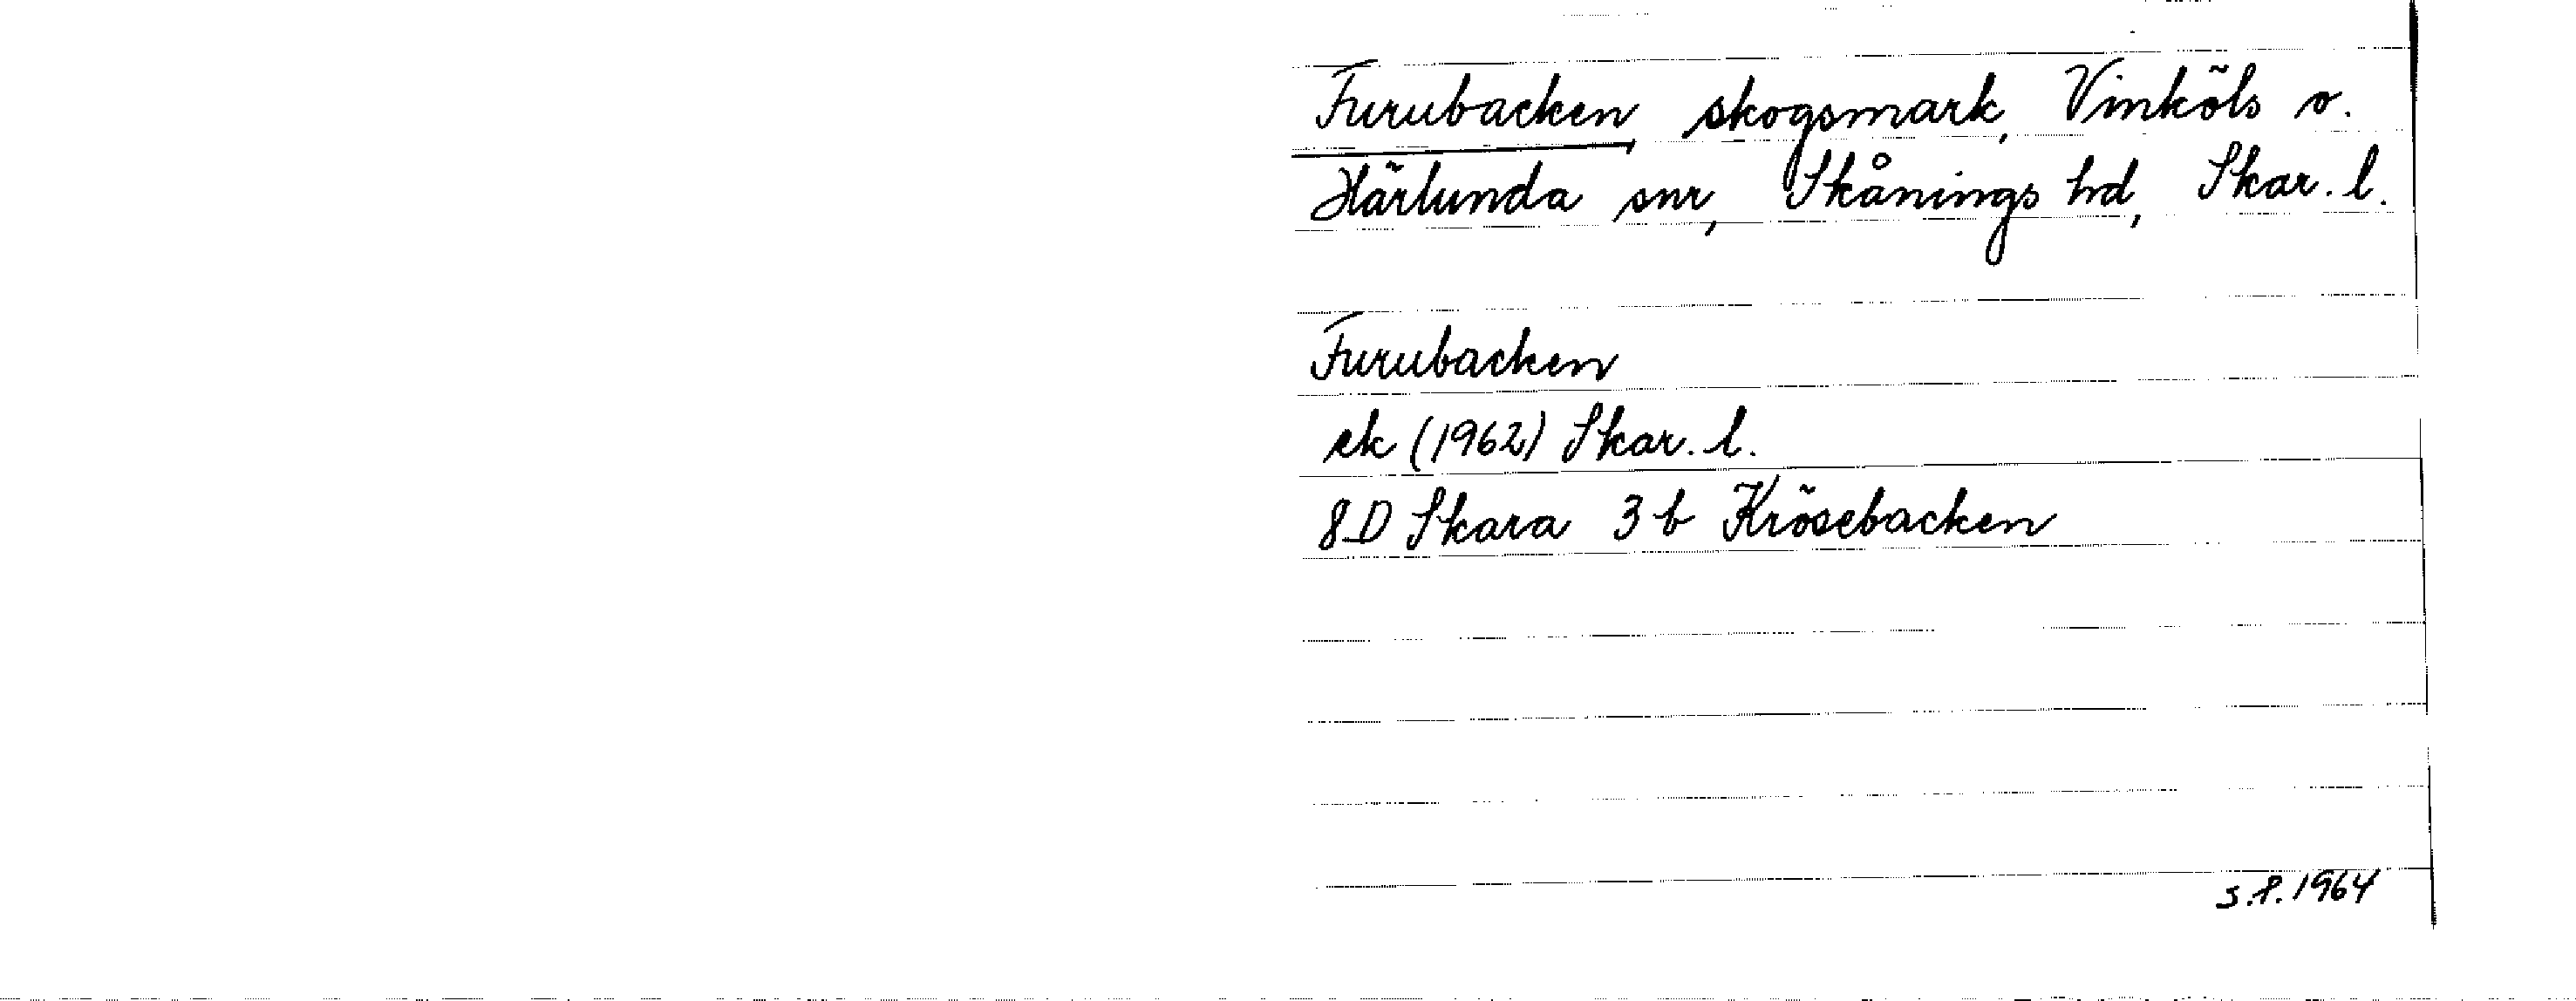 Furubacken, skogsmark, Vinköls o.
Härlunda snr, Skånings hd, Skar. l.
Furubacken
ek (1962) Skar. l.
8D Skara 3 b Krösebacken
S.P. 1964